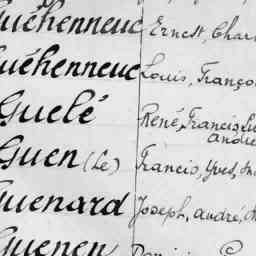 uéhenneuc Ernest, Char
uéhenneuc Louis, Franço
Guelé René, Francis, Lu
André
Guen (Le) Francis, Yves, In
Guenard Joseph, André, A
Guenen